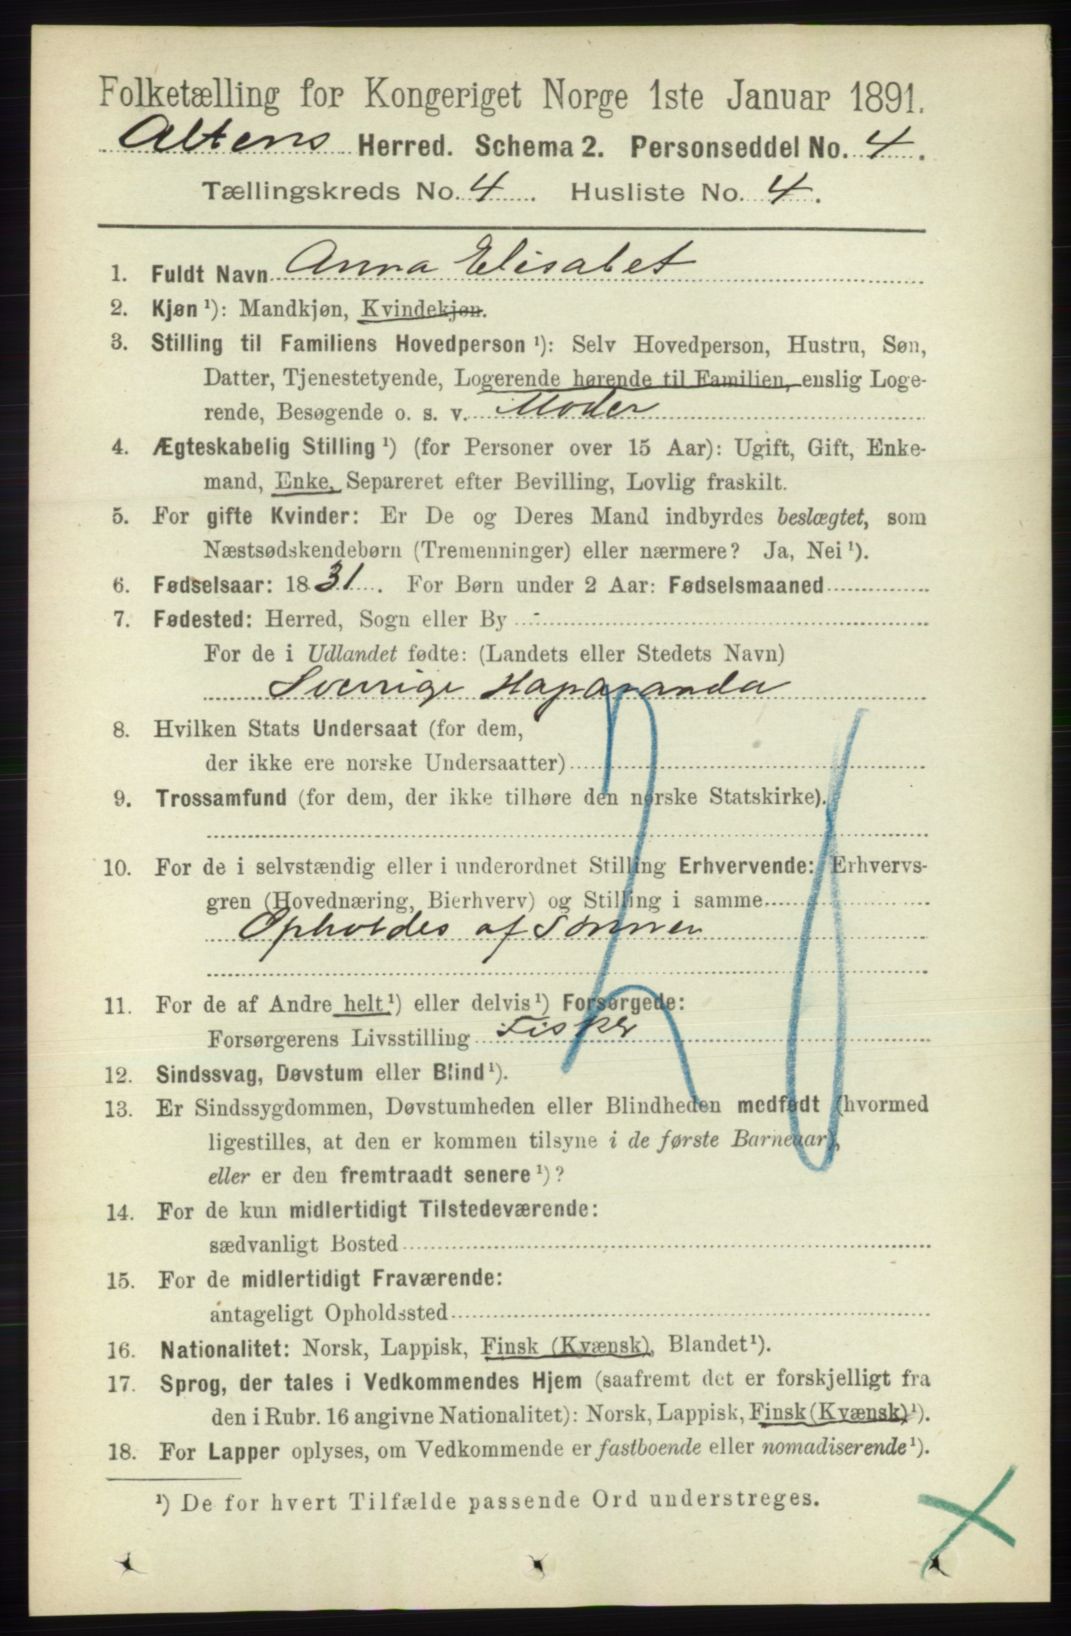 Folketælling for Kongeriget Norge 1ste Januar 1891.
Altens Herred. Schema 2. Personseddel No. 4.
Tællingskreds No. 4. Husliste No. 4.
1. Fuldt Navn Anna Elisabet
2. Kjøn ¹): Mandkjøn, Kvindekjøn.
3. Stilling til Familiens Hovedperson ¹): Selv Hovedperson, Hustru, Søn,
Datter, Tjenestetyende, Logerende hørende til Familien, enslig Loge-
rende, Besøgende o. s. v. Moder
4. Ægteskabelig Stilling ¹) (for Personer over 15 Aar): Ugift, Gift, Enke-
mand, Enke, Separeret efter Bevilling, Lovlig fraskilt.
5. For gifte Kvinder: Er De og Deres Mand indbyrdes beslægtet, som
Næstsødskendebørn (Tremenninger) eller nærmere? Ja, Nei ¹).
6. Fødselsaar: 1831. For Børn under 2 Aar: Fødselsmaaned
7. Fødested: Herred, Sogn eller By -
For de i Udlandet fødte: (Landets eller Stedets Navn)
Sverrige Haparanda
8. Hvilken Stats Undersaat (for dem,
der ikke ere norske Undersaatter)
9. Trossamfund (for dem, der ikke tilhøre den norske Statskirke).
10. For de i selvstændig eller i underordnet Stilling Erhvervende: Erhvervs-
gren (Hovednæring, Bierhverv) og Stilling i samme
Opholdes af Sønnen
11. For de af Andre helt ¹) eller delvis ¹) Forsørgede:
Forsørgerens Livsstilling Fisker
12. Sindssvag, Døvstum eller Blind ¹).
13. Er Sindssygdommen, Døvstumheden eller Blindheden medfødt (hvormed
ligestilles, at den er kommen tilsyne i de første Barneaar),
eller er den fremtraadt senere ¹)?
14. For de kun midlertidigt Tilstedeværende:
sædvanligt Bosted
15. For de midlertidigt Fraværende:
antageligt Opholdssted
16. Nationalitet: Norsk, Lappisk, Finsk (Kvænsk), Blandet ¹).
17. Sprog, der tales i Vedkommendes Hjem (saafremt det er forskjelligt fra
den i Rubr. 16 angivne Nationalitet): Norsk, Lappisk, Finsk (Kvænsk) ¹).
18. For Lapper oplyses, om Vedkommende er fastboende eller nomadiserende ¹).
¹) De for hvert Tilfælde passende Ord understreges.